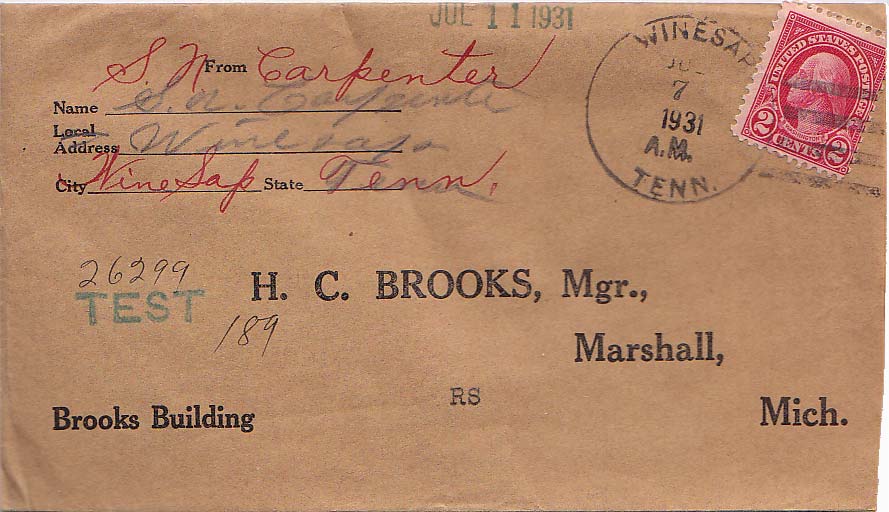 JUL 11 1931
S. N. Carpenter
From
Name S. N. Carpenter
Local
Address Winesap
City WineSap State Tenn.
WINESAP
7
1931
A.M.
TENN.
UNITED STATES POSTAGE
WASHINGTON
2 CENTS 2
26299
TEST
189
H. C. BROOKS, Mgr.,
Marshall,
RS
Brooks Building
Mich.